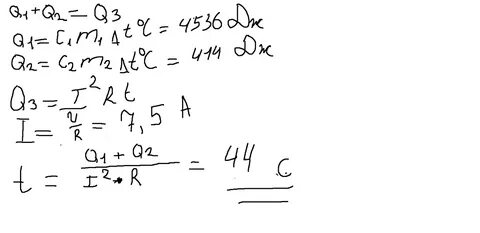 Q₁+Q₂=Q₃
Q₁=C₁m₁Δt°C=4536 Дж
Q₂=C₂m₂Δt°C=414 Дж
Q₃=I²Rt
I=U/R=7,5 A
t=(Q₁+Q₂)/(I²·R)=44 c